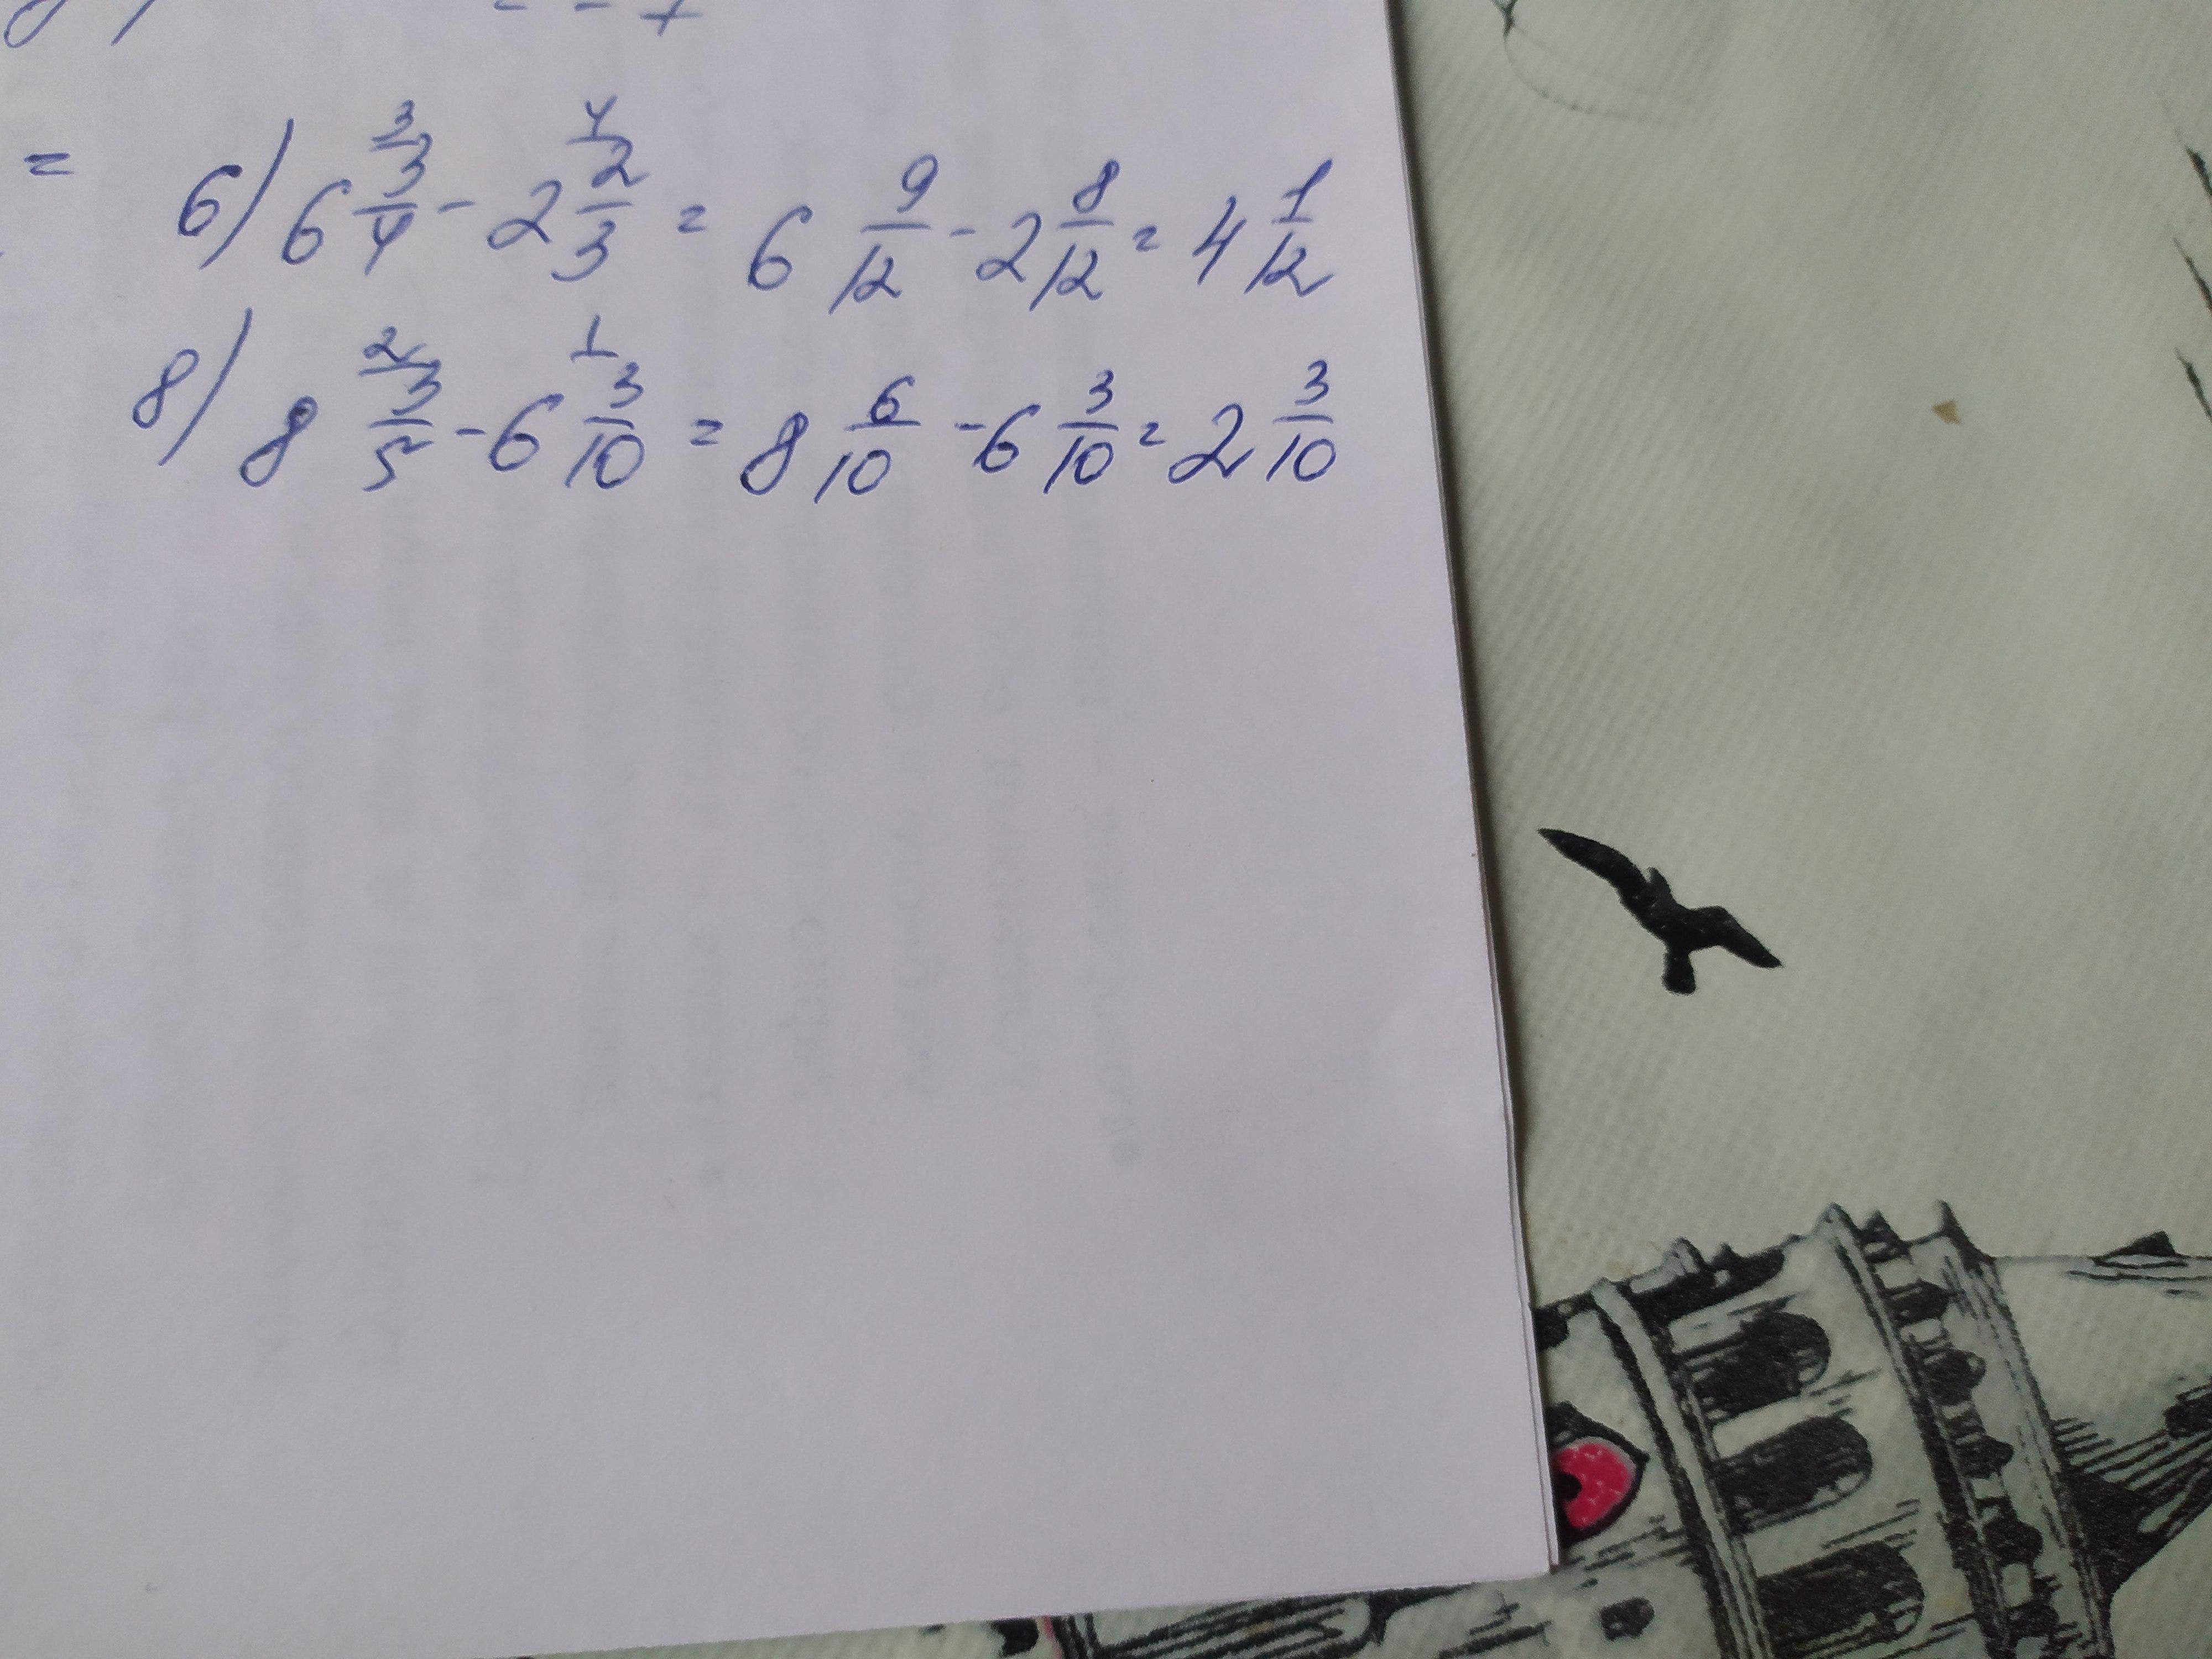 =
6) 6 3/4 - 2 2/3 = 6 9/12 - 2 8/12 = 4 1/12
8) 8 3/5 - 6 3/10 = 8 6/10 - 6 3/10 = 2 3/10